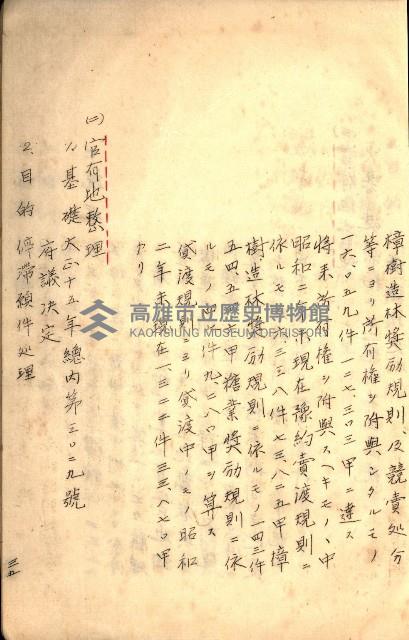 樟樹造林奬勵規則、及競賣処分
等ニヨリ所有權ヲ附與シタルモノ
一六、〇五九件一二七、三〇三甲ニ達ス
將来所有權ヲ附與スヘキモノハ中
昭和二年末現在豫約賣渡規則ニ
依ルモノ三三八件七三、八二五甲樟
樹造林奬勵規則ニ依ルモノ一四三件
五四五二甲糖業奬勵規則ニ依
ルモノ 件九、二八〇甲ヲ算ス
貸渡規 ヨリ貸渡中ノモノ昭和
二年末現在一、三二二件三三、八七〇甲
アリ
(二)官有地整理
1、基礎 大正十五年總内第三〇二九號
府議決定
2、目的 停滯願件処理
三五
高雄市立歷史博物館
KAOHSIUNG MUSEUM OF HISTORY